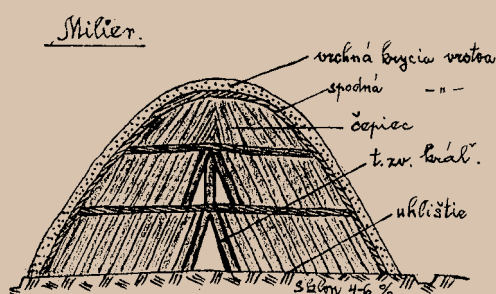 Milier.
vrchná krycia vrstva
spodná -"-
čepiec
t.zv. kráľ.
uhlištie
sklon 4-6 %